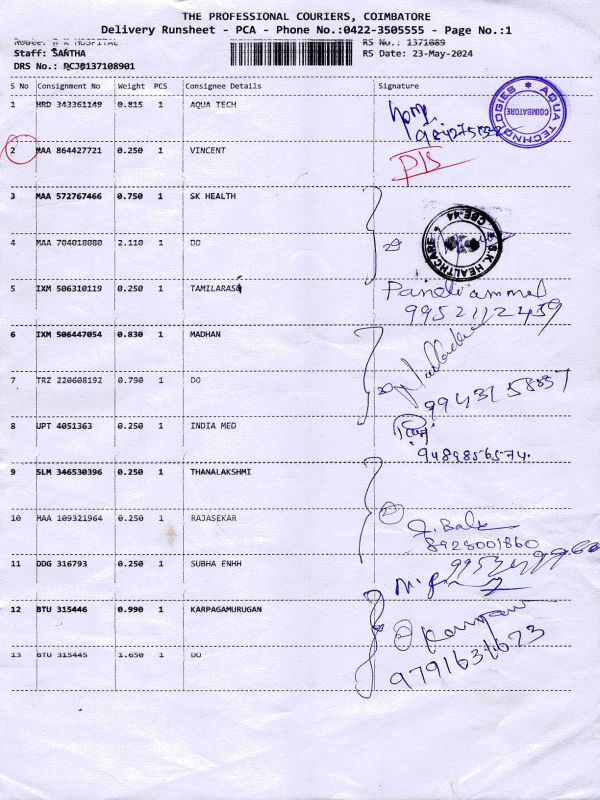 THE PROFESSIONAL COURIERS, COIMBATORE
Delivery Runsheet - PCA - Phone No.:0422-3505555 - Page No.:1
RS No.: 1371089
Staff: SANTHA
RS Date: 23-May-2024
DRS No.: PCJ0137108901
S No Consignment No Weight PCS Consignee Details Signature
1 HRD 343361149 0.815 1 AQUA TECH
AQUA TECHNOLOGIES
COIMBATORE
2 MAA 864427721 0.250 1 VINCENT
3 MAA 572767466 0.750 1 SK HEALTH
S.K. HEALTHCARE
CBE-44
4 MAA 704018080 2.110 1 DO
5 IXM 506310119 0.250 1 TAMILARASI
Pandiammal
9952112439
6 IXM 506447054 0.830 1 MADHAN
7 TRZ 220608192 0.790 1 DO
9943758397
8 UPT 4051363 0.250 1 INDIA MED
9489856574.
9 SLM 346530396 0.250 1 THANALAKSHMI
10 MAA 109321964 0.250 1 RAJASEKAR
8928001860
11 DDG 316793 0.250 1 SUBHA ENHH
12 BTU 315446 0.990 1 KARPAGAMURUGAN
13 BTU 315445 1.650 1 DO
9791631673